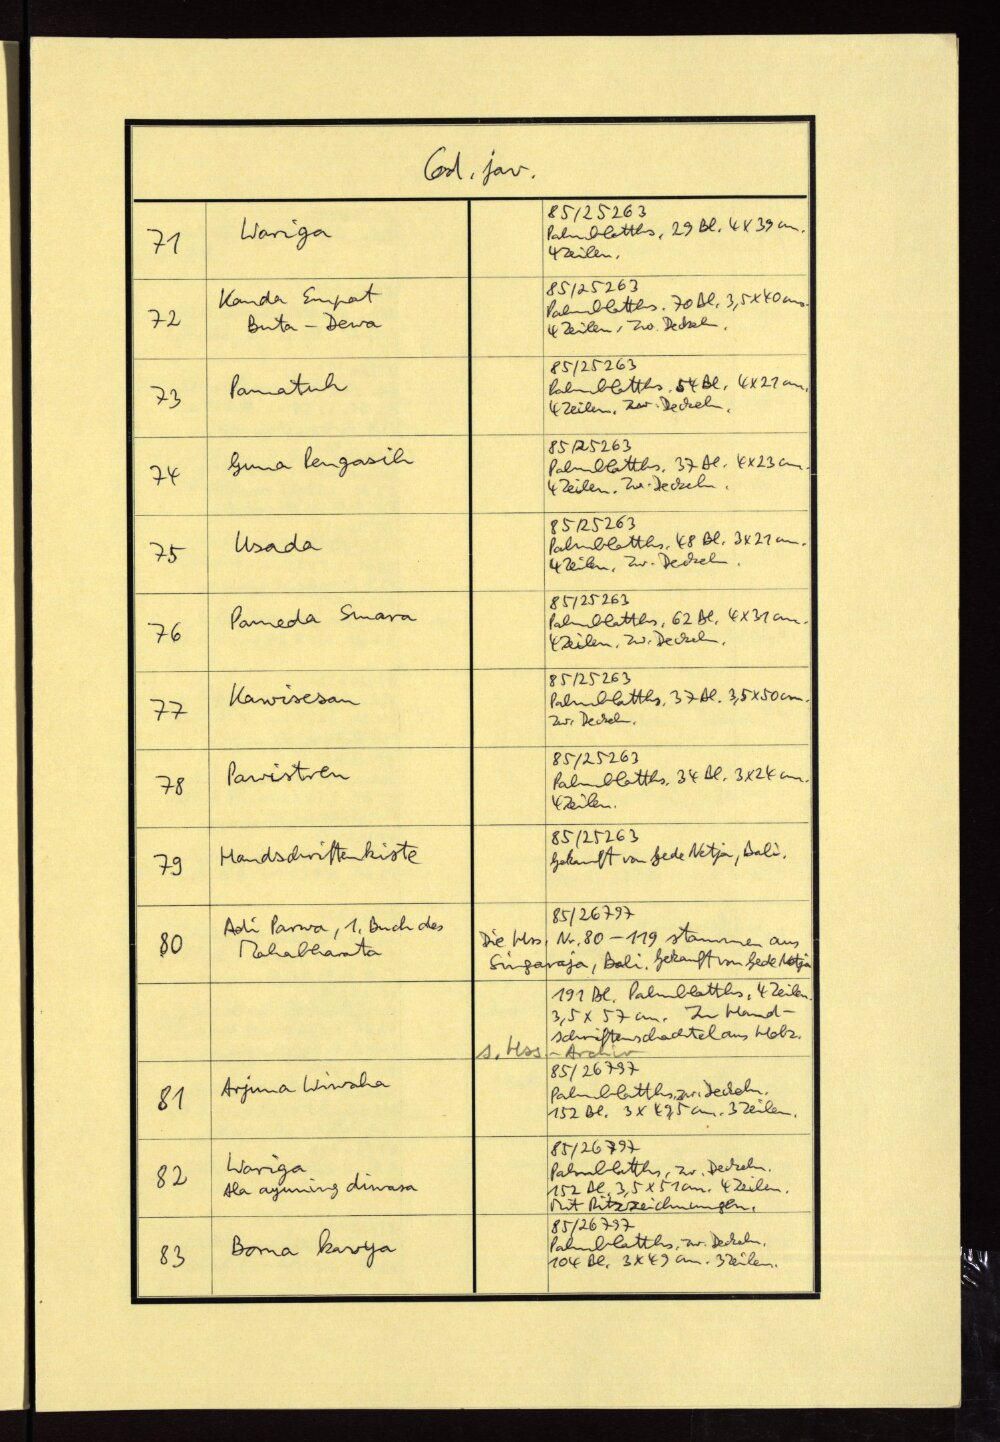 Cod. jav.
71
Wariga
85/25263
Palmblatths. 29 Bl. 4 x 39 cm.
4 Zeilen.
72
Kanda Empat
Buta - Dewa
85/25263
Palmblatths. 70 Bl. 3,5 x 40 cm.
4 Zeilen, zw. Deckeln.
73
Pamatuh
85/25263
Palmblatths. 54 Bl. 4 x 21 cm.
4 Zeilen. zw. Deckeln.
74
Guna Pengasih
85/25263
Palmblatths. 37 Bl. 4 x 23 cm.
4 Zeilen. zw. Deckeln.
75
Usada
85/25263
Palmblatths. 48 Bl. 3 x 21 cm.
4 Zeilen, zw. Deckeln.
76
Pameda Smara
85/25263
Palmblatths. 62 Bl. 4 x 31 cm.
4 Zeilen, zw. Deckeln.
77
Kawisesan
85/25263
Palmblatths. 37 Bl. 3,5 x 50 cm.
zw. Deckeln.
78
Pawistren
85/25263
Palmblatths. 34 Bl. 3 x 24 cm.
4 Zeilen.
79
Handschriftenkiste
85/25263
Gekauft von Gede Netja, Bali.
80
Adi Parwa, 1. Buch des
Mahabharata
85/26797
Die Hss. Nr. 80 - 119 stammen aus
Singaraja, Bali. Gekauft von Gede Netja
191 Bl. Palmblatths, 4 Zeilen.
3,5 x 57 cm. In Hand-
schriftenschachtel aus Holz.
s. Hss - Archiv
81
Arjuna Wiwaha
85/26797
Palmblatths, zw. Deckeln.
152 Bl. 3 x 49,5 cm. 3 Zeilen.
82
Wariga
Ala ayuning diwasa
85/26797
Palmblatths, zw. Deckeln.
152 Bl. 3,5 x 51 cm. 4 Zeilen.
Mit Ritzzeichnungen.
83
Boma kavya
85/26797
Palmblatths, zw. Deckeln.
104 Bl. 3 x 49 cm. 3 Zeilen.